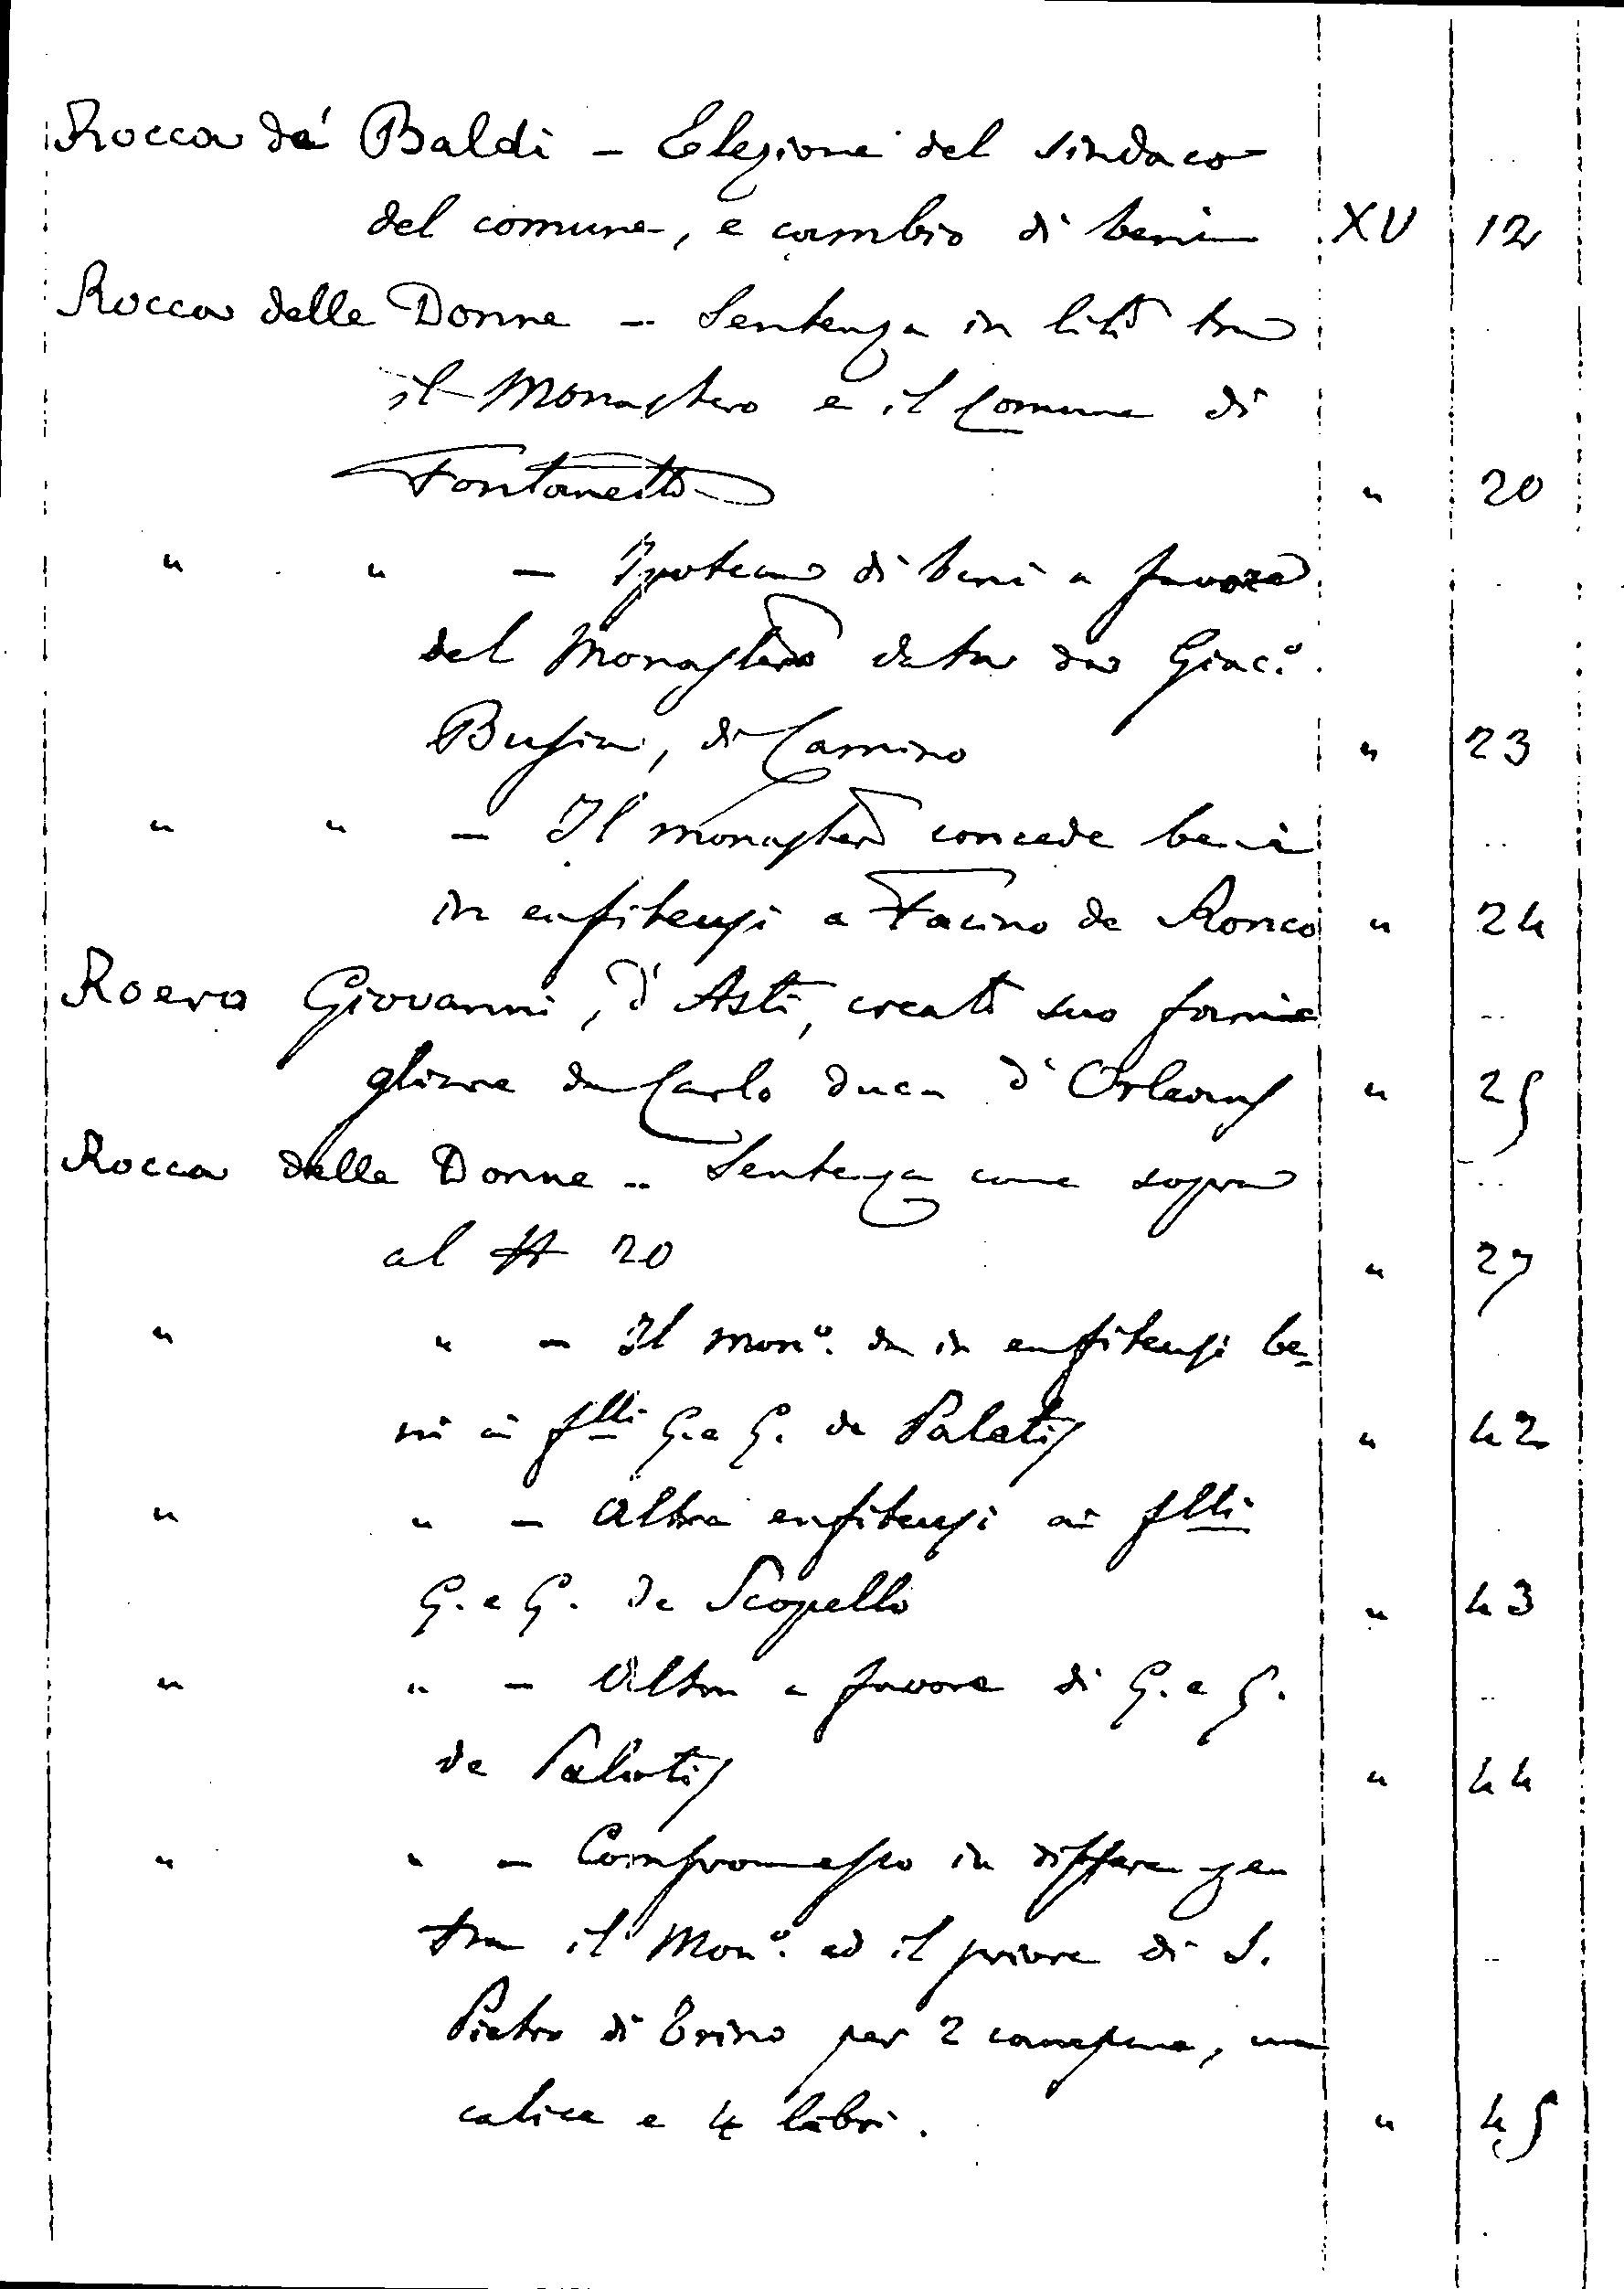 Rocca de' Baldi – Elezione del sindaco
del comune, e cambio di beni XV 12
Rocca delle Donne – Sentenza in lite tra
il Monastero e il Comune di
Fontanetto " 20
" " – Ipoteca di beni a favore
del Monastero data da Giac.º
Busia, di Camino " 23
" " – Il monastero concede beni
in enfiteusi a Facino de Ronco " 24
Roero Giovanni, d'Asti, creato suo fami
gliare da Carlo duca d'Orleans " 25
Rocca delle Donne – Sentenza come sopra
al # 20 " 27
" " – Il mon.º da in enfiteusi be-
ni ai flli G. e G. de Palatis " 42
" " – Altra enfiteusi ai flli
G. e G. de Scopello " 43
" " – Altra a favore di G. e G.
de Palatis " 44
" " – Compromesso in differenza
tra il Mon.º ed il priore di S.
Pietro di Trino per 2 campane, un
calice e 4 libri. " 45